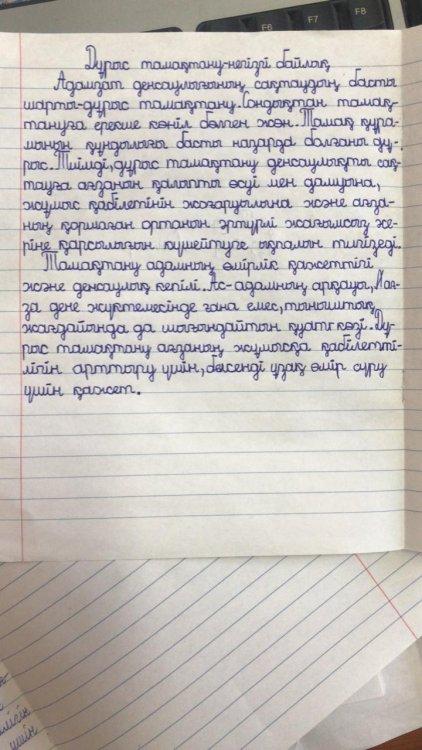 Дұрыс тамақтану-негізгі байлық
Адамзат денсаулығының сақтаудың басты
шарты-дұрыс тамақтану. Сондықтан тамақ-
тануға ерекше көңіл бөлген жөн. Тамақ құра-
мының құндылығы басты назарда болғаны ду-
рыс. Тиімді, дұрыс тамақтану денсаулықты сақ-
тауға ағзаның қалыпты өсуі мен дамуына,
жұмыс қабілетінің жоғаруылына және ағза-
ның қоршаған ортаның әртүрлі жағымсыз әсе-
ріне қарсылығын күшейтуге ықпалын тигізеді.
Тамақтану адамның өмірлік қажеттігі
және денсаулық кепілі. Ас-адамның арқауы,
за дене жүктемесінде ғана емес, тыныштық
жағдайында да шығындайтын қуат көзі. Ду-
рыс тамақтану ағзаның жұмысқа қабілетті-
лігін арттыру үшін, белсенді ұзақ өмір сүру
үшін қажет.
F6
F7
F8